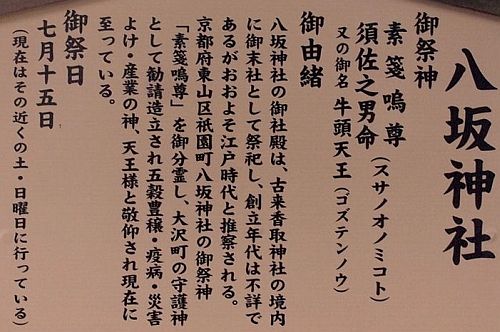 八坂神社
御祭神
素箋嗚尊
須佐之男命(スサノオノミコト)
又の御名 牛頭天王(ゴズテンノウ)
御由緒
八坂神社の御社殿は、古来香取神社の境内
に御末社として祭祀し、創立年代は不詳で
あるがおおよそ江戸時代と推察される。
京都府東山区祇園町八坂神社の御祭神
「素箋嗚尊」を御分霊し、大沢町の守護神
として勧請造立され五穀豊穣・疫病・災害
よけ・産業の神、天王様と敬仰され現在に
至っている。
御祭日
七月十五日
(現在はその近くの土・日曜日に行っている)